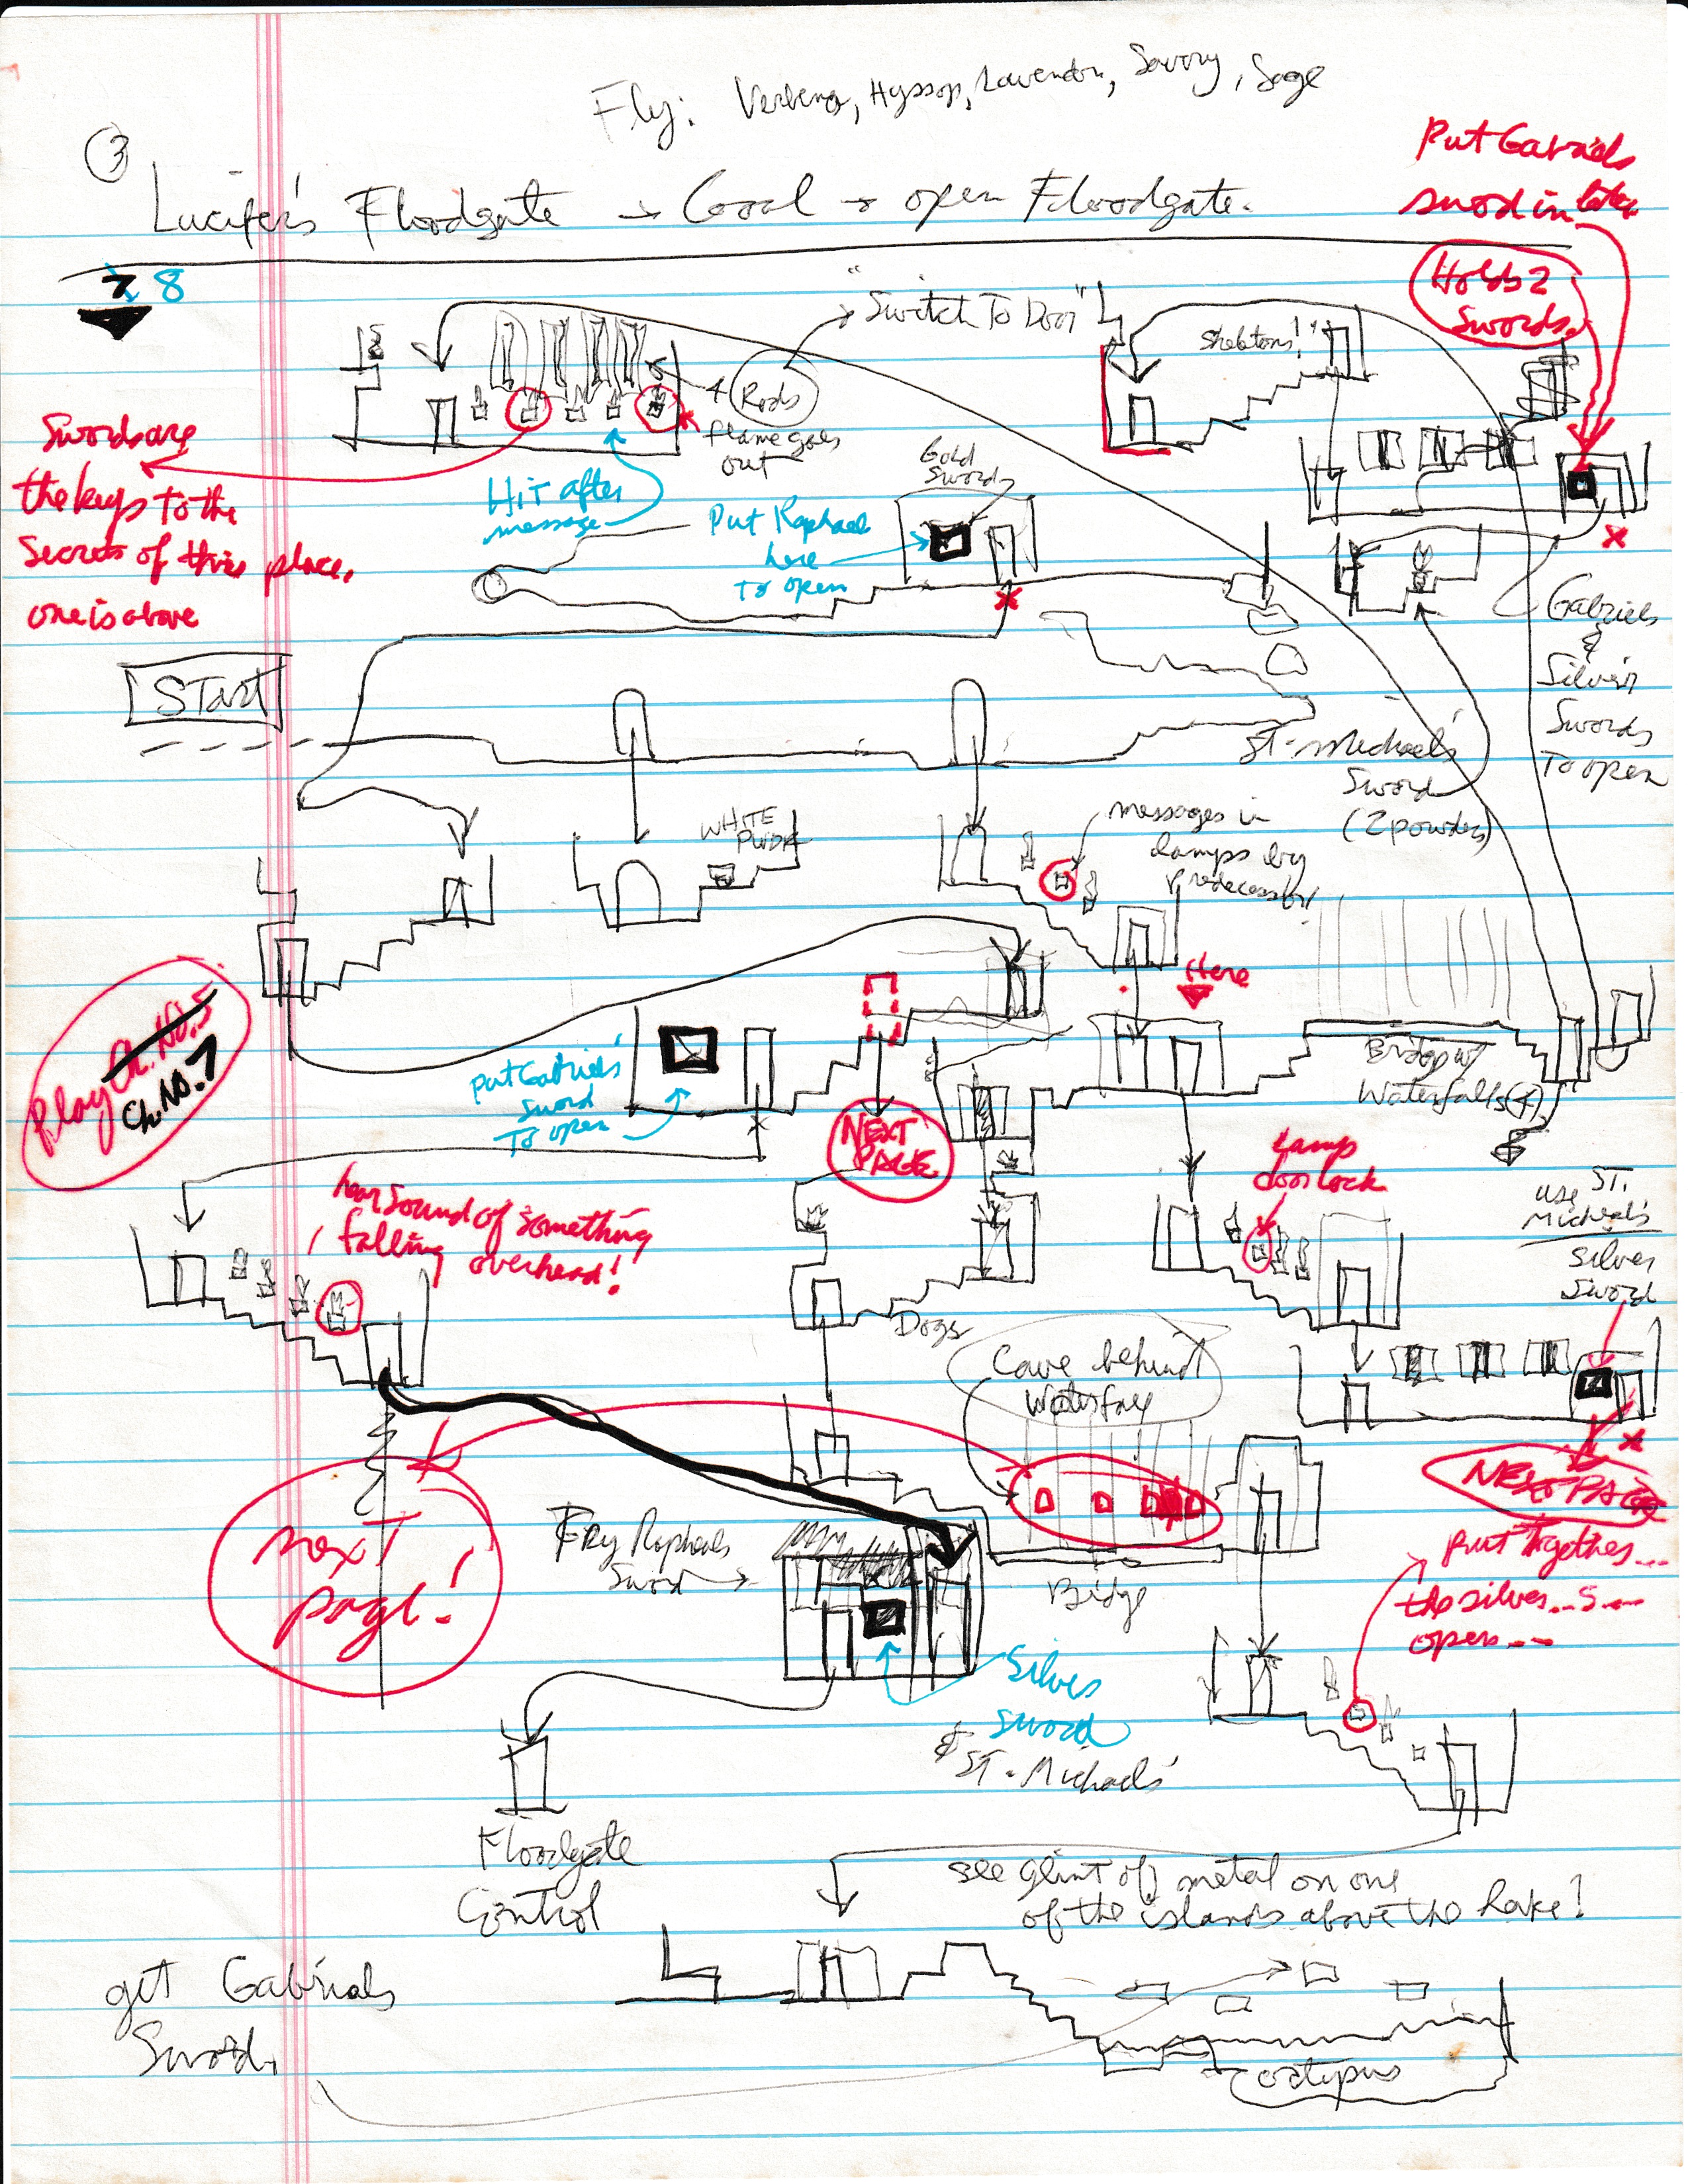 Fly: Verbena, Hyssop, Lavendar, Savory, Sage
③
Lucifer's Floodgate → Goal → open Floodgate.
Put Gabriels
sword in later
Holds 2
Swords.
7 8
"Switch To Door"
Skeletons!
4 Rods
flame goes
out
Swords are
the keys to the
Secrets of this place,
one is above
Hit after
message
Gold
Sword
Put Raphael
here
To open
Gabriels
&
Silver
Swords
To open
START
ST. Michaels'
Sword
(2 powders)
WHITE
messages in
lamps by
predecessor!
Here
Play Ch. No. 5
Ch. No. 7
put Gabriels'
sword
To open
NEXT
PAGE
Bridge w/
Waterfalls (4)
Lamp
door lock
hear sound of something
falling overhead!
use ST.
Michaels
silver
sword
Dogs
Cave behind
Waterfall
NEXT PAGE
next
page!
Raphaels
Sword →
Bridge
Put Together...
the silver...S...
open...
Silver
sword
& ST. Michaels'
Floodgate
Control
see glint of metal on one
of the islands above the Lake!
get Gabriels
Sword.
octopus